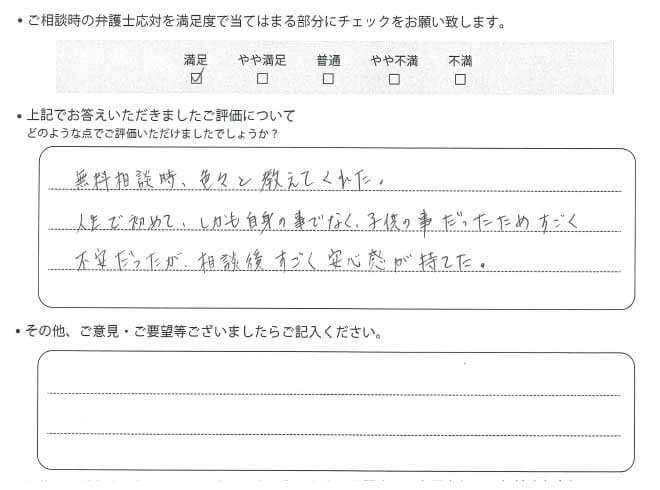 • ご相談時の弁護士応対を満足度で当てはまる部分にチェックをお願い致します。
満足 やや満足 普通 やや不満 不満
☑ □ □ □ □
• 上記でお答えいただきましたご評価について
どのような点でご評価いただけましたでしょうか？
無料相談時、色々と教えてくれた。
人生で初めて、しかも自身の事でなく、子供の事だったためすごく
不安だったが、相談後すごく安心感が持てた。
• その他、ご意見・ご要望等ございましたらご記入ください。